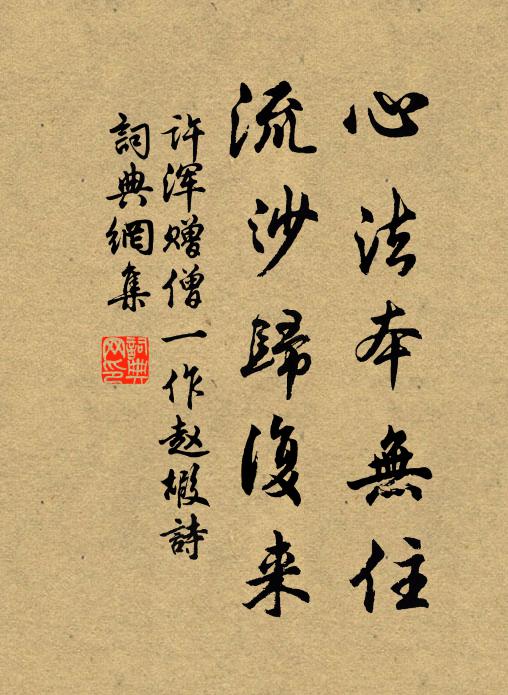 心法本無住
流沙歸復来
许渾赠僧一作赵嘏詩
詞典網集
詞典网印